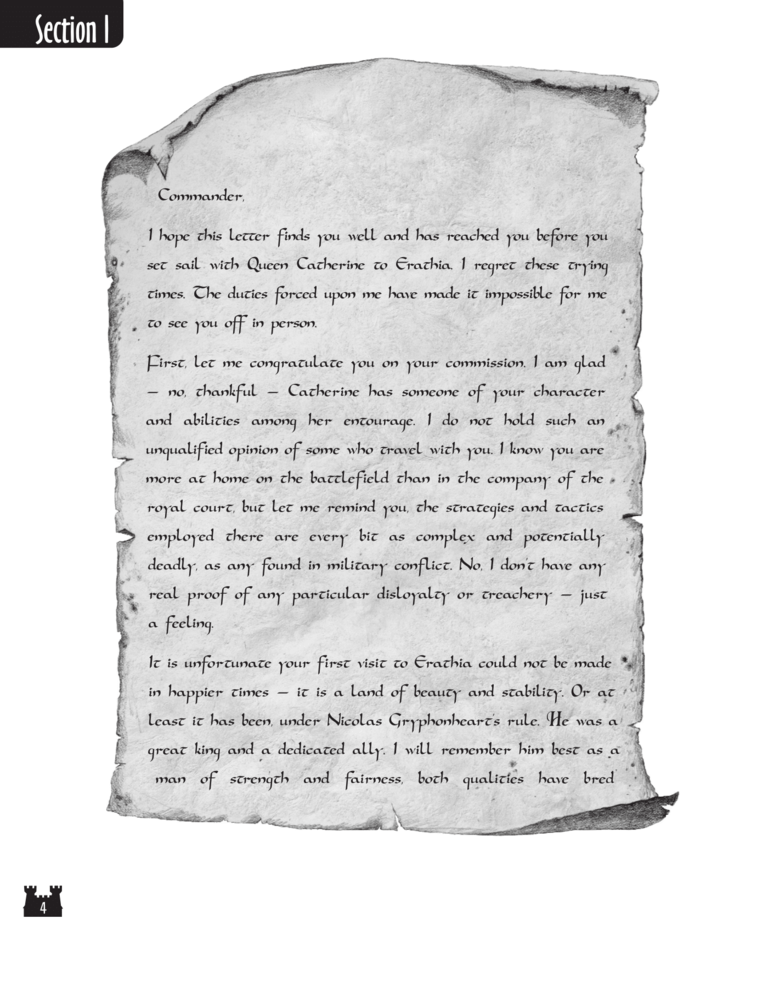 Section I
Commander,
I hope this letter finds you well and has reached you before you
set sail with Queen Catherine to Erathia. I regret these trying
times. The duties forced upon me have made it impossible for me
to see you off in person.
First, let me congratulate you on your commission. I am glad
– no, thankful – Catherine has someone of your character
and abilities among her entourage. I do not hold such an
unqualified opinion of some who travel with you. I know you are
more at home on the battlefield than in the company of the
royal court, but let me remind you, the strategies and tactics
employed there are every bit as complex and potentially
deadly, as any found in military conflict. No, I don't have any
real proof of any particular disloyalty or treachery – just
a feeling.
It is unfortunate your first visit to Erathia could not be made
in happier times – it is a land of beauty and stability. Or at
least it has been, under Nicolas Gryphonheart's rule. He was a
great king and a dedicated ally. I will remember him best as a
man of strength and fairness, both qualities have bred
4